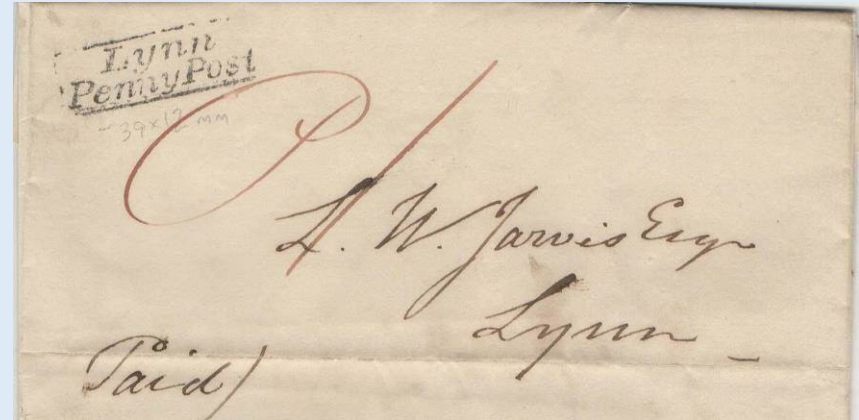 Lynn
Penny Post
39 x 12 mm
P 1
L. W. Jarvis Esqr
Lynn
Paid